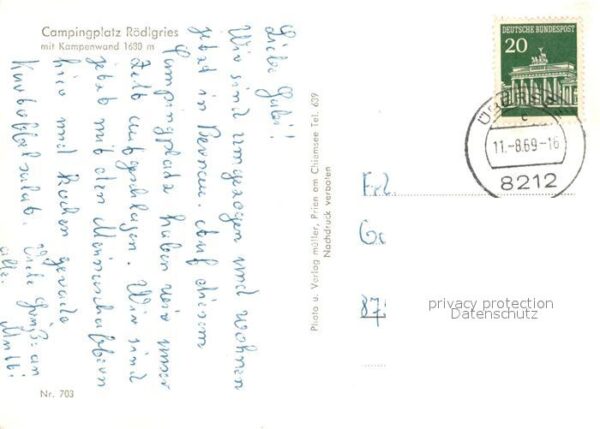 Campingplatz Rödlgries
mit Kampenwand 1630 m
Liebe Gabi!
Wir sind umgezogen und wohnen
jetzt in Bernau. Auf diesem
Campingplatz haben wir unser
Zelt aufgeschlagen. Wir sind
jetzt mit den
hier und kochen gerade
Kartoffelsalat. Viele Grüße an
alle.
Mutti!
Nr. 703
Photo u. Verlag müller, Prien am Chiemsee Tel. 639
Nachdruck verboten
DEUTSCHE BUNDESPOST
20
11.-8.69-16
8212
c
Frl.
Ge
87
privacy protection
Datenschutz